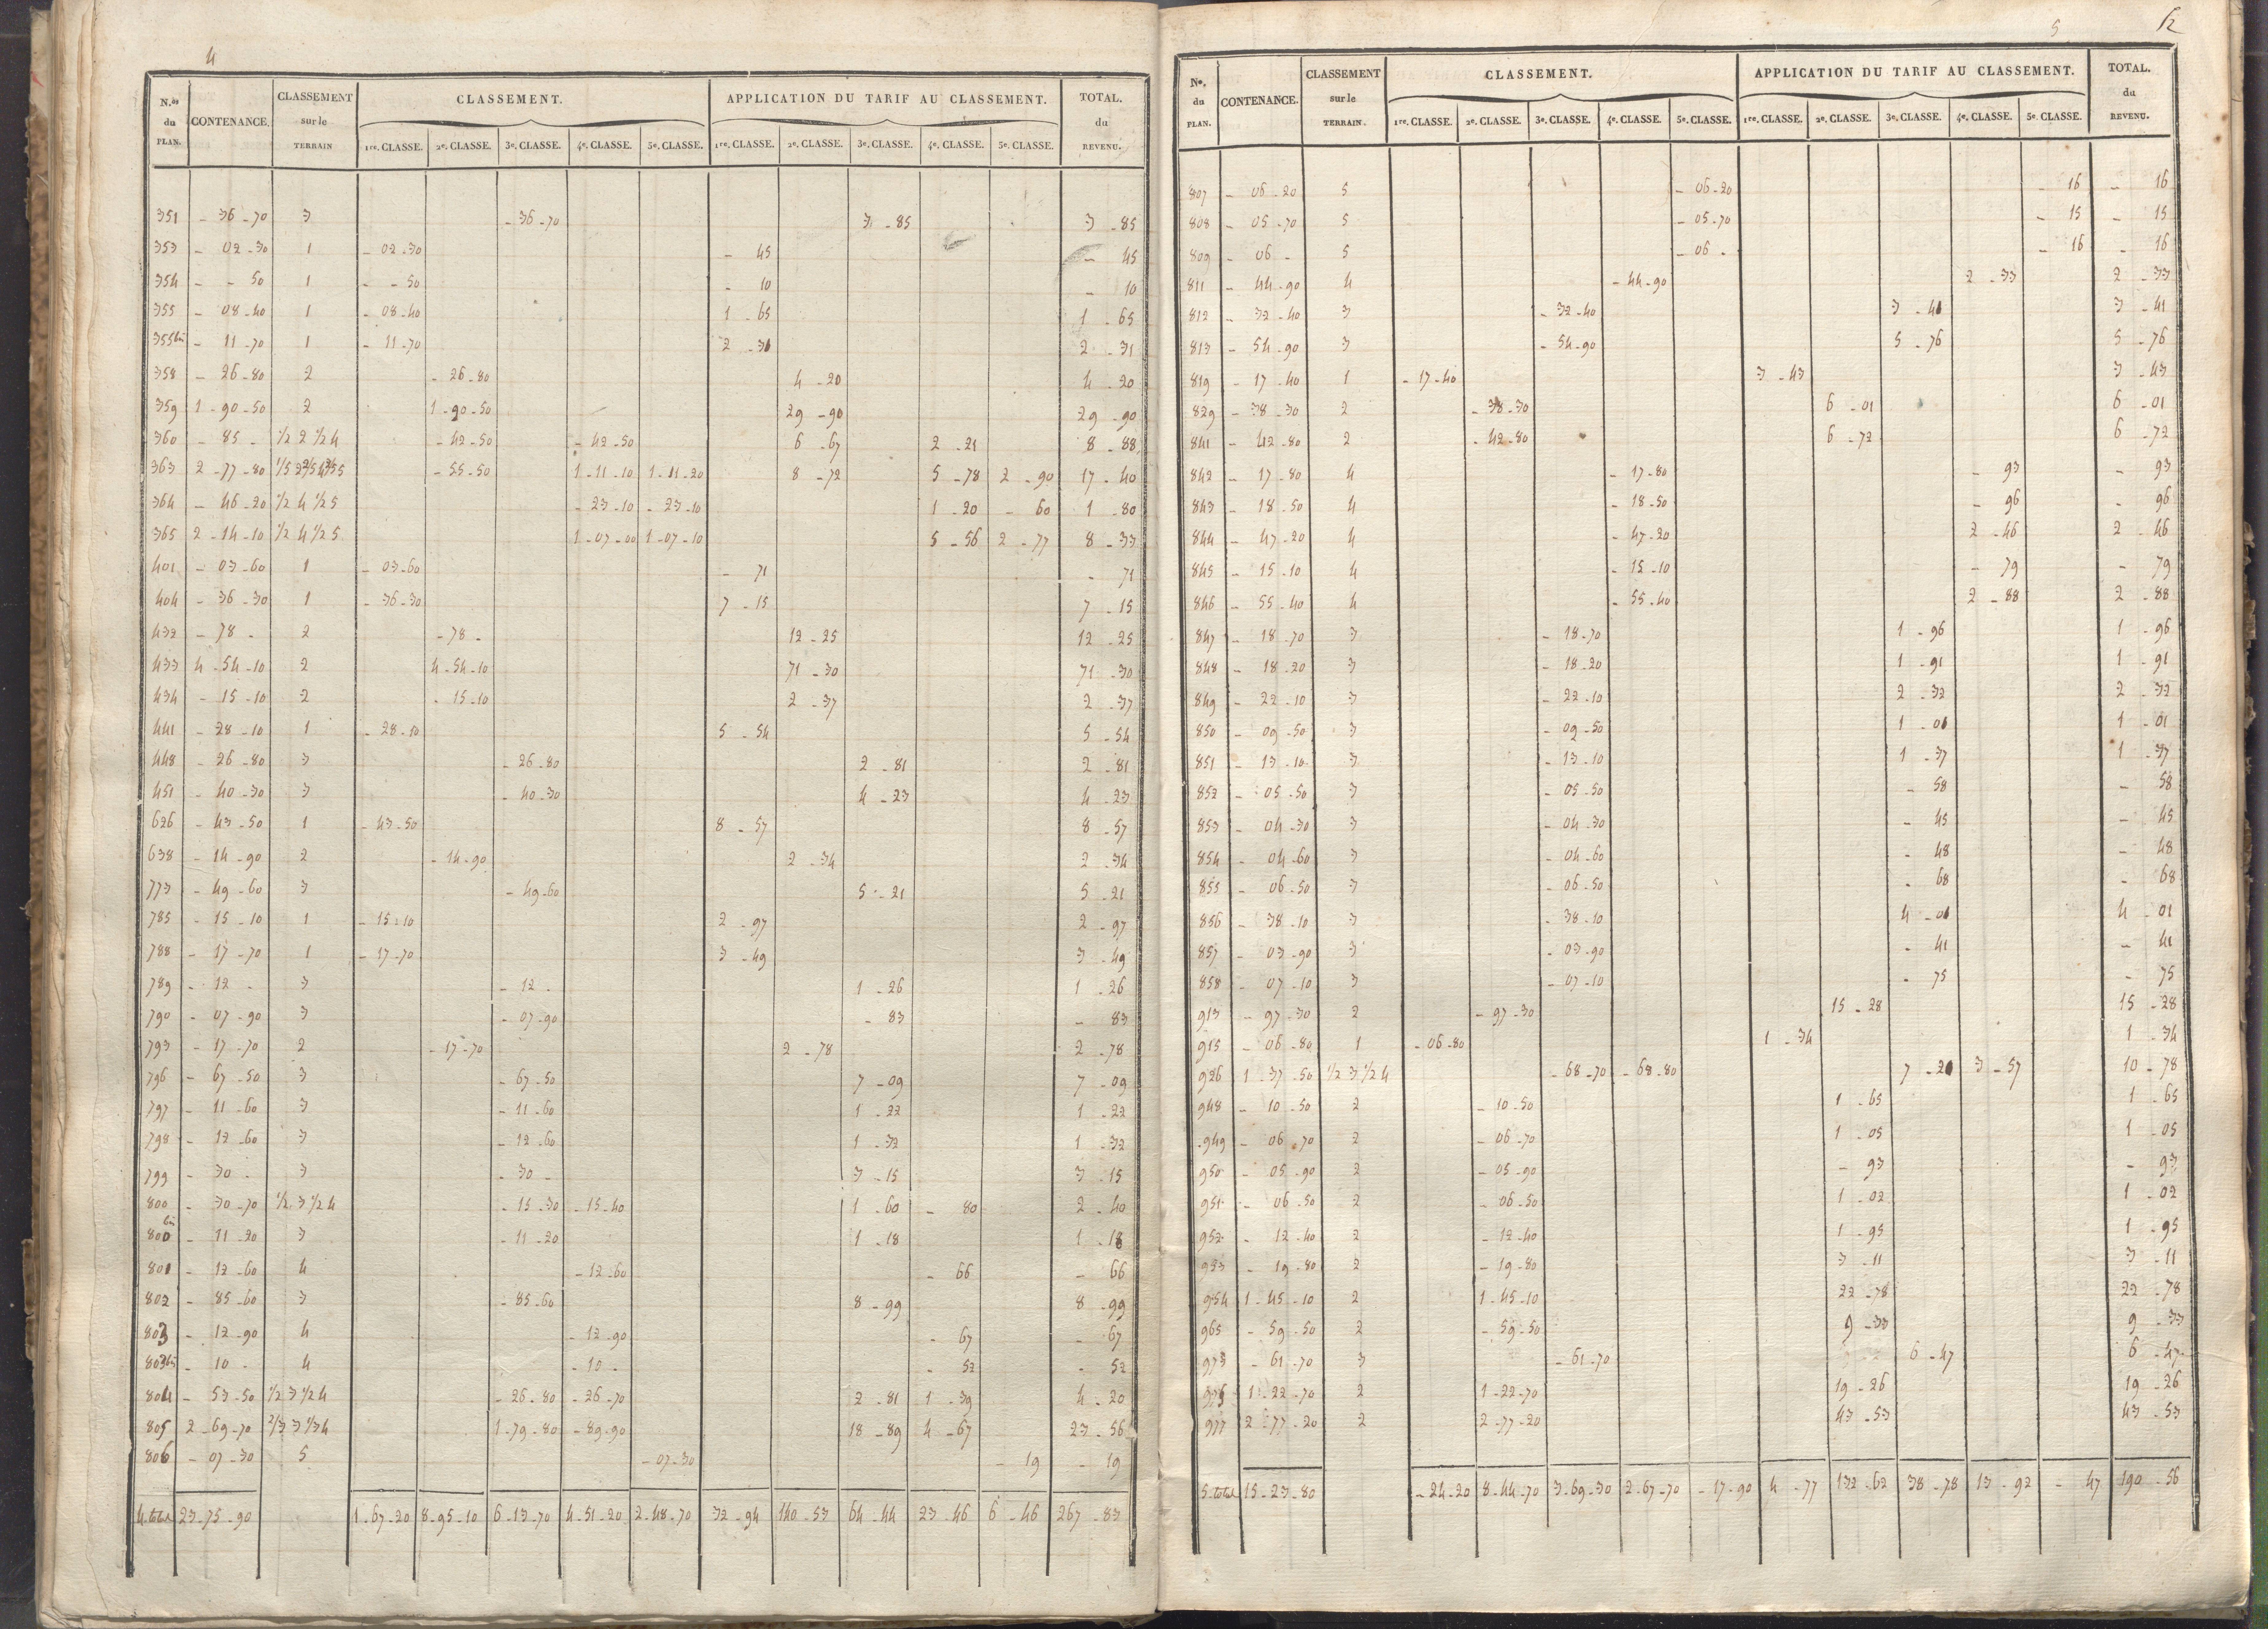 4
N.os du PLAN. CONTENANCE. CLASSEMENT sur le TERRAIN CLASSEMENT. APPLICATION DU TARIF AU CLASSEMENT. TOTAL. du REVENU.
1re. CLASSE. 2e. CLASSE. 3e. CLASSE. 4e. CLASSE. 5e. CLASSE. 1re. CLASSE. 2e. CLASSE. 3e. CLASSE. 4e. CLASSE. 5e. CLASSE.
351 - 36-70 3 - 36-70 3 - 85 3 - 85
353 - 02-30 1 - 02-30 - 45 - 45
354 - - 50 1 - - 50 - 10 - 10
355 - 08-40 1 - 08-40 1 - 65 1 - 65
355bis - 11-70 1 - 11-70 2 - 31 2 - 31
358 - 26-80 2 - 26-80 4 - 20 4 - 20
359 1-90-50 2 1-90-50 29 - 90 29 - 90
360 - 85 - 1/2 2 1/2 4 - 42-50 - 42-50 6 - 67 2 - 21 8 - 88
363 2-77-80 1/5 2 2/5 4 2/5 5 - 55-50 1-11-10 1-11-20 8 - 72 5 - 78 2 - 90 17 - 40
364 - 46-20 1/2 4 1/2 5 - 23-10 - 23-10 1 - 20 - 60 1 - 80
365 2-14-10 1/2 4 1/2 5 1-07-00 1-07-10 5 - 56 2 - 77 8 - 33
401 - 03-60 1 - 03-60 - 71 - 71
404 - 36-30 1 - 36-30 7 - 15 7 - 15
432 - 78 - 2 - 78 - 12 - 25 12 - 25
433 4-54-10 2 4-54-10 71 - 30 71 - 30
434 - 15-10 2 - 15-10 2 - 37 2 - 37
441 - 28-10 1 - 28-10 5 - 54 5 - 54
448 - 26-80 3 - 26-80 2 - 81 2 - 81
451 - 40-30 3 - 40-30 4 - 23 4 - 23
626 - 43-50 1 - 43-50 8 - 57 8 - 57
638 - 14-90 2 - 14-90 2 - 34 2 - 34
773 - 49-60 3 - 49-60 5 - 21 5 - 21
785 - 15-10 1 - 15-10 2 - 97 2 - 97
788 - 17-70 1 - 17-70 3 - 49 3 - 49
789 - 12 - 3 - 12 - 1 - 26 1 - 26
790 - 07-90 3 - 07-90 - 83 - 83
793 - 17-70 2 - 17-70 2 - 78 2 - 78
796 - 67-50 3 - 67-50 7 - 09 7 - 09
797 - 11-60 3 - 11-60 1 - 22 1 - 22
798 - 12-60 3 - 12-60 1 - 32 1 - 32
799 - 30 - 3 - 30 - 3 - 15 3 - 15
800 - 30-70 1/2 3 1/2 4 - 15-30 - 15-40 1 - 60 - 80 2 - 40
800bis - 11-20 3 - 11-20 1 - 18 1 - 18
801 - 12-60 4 - 12-60 - 66 - 66
802 - 85-60 3 - 85-60 8 - 99 8 - 99
803 - 12-90 4 - 12-90 - 67 - 67
803bis - 10 - 4 - 10 - - 52 - 52
804 - 53-50 1/2 3 1/2 4 - 26-80 - 26-70 2 - 81 1 - 39 4 - 20
805 2-69-70 2/3 3 1/3 4 1-79-80 - 89-90 18 - 89 4 - 67 23 - 56
806 - 07-30 5 - 07-30 - 19 - 19
4.total 23-75-90 1-67-20 8-95-10 6-13-70 4-51-20 2-48-70 32 - 94 140 - 53 64 - 44 23 - 46 6 - 46 267 - 83
5 12
Nos. du PLAN. CONTENANCE. CLASSEMENT sur le TERRAIN. CLASSEMENT. APPLICATION DU TARIF AU CLASSEMENT. TOTAL. du REVENU.
1re. CLASSE. 2e. CLASSE. 3e. CLASSE. 4e. CLASSE. 5e. CLASSE. 1re. CLASSE. 2e. CLASSE. 3e. CLASSE. 4e. CLASSE. 5e. CLASSE.
807 - 06-20 5 - 06-20 - 16 - 16
808 - 05-70 5 - 05-70 - 15 - 15
809 - 06 - 5 - 06 - - 16 - 16
811 - 44-90 4 - 44-90 2 - 33 2 - 33
812 - 32-40 3 - 32-40 3 - 41 3 - 41
813 - 54-90 3 - 54-90 5 - 76 5 - 76
819 - 17-40 1 - 17-40 3 - 43 3 - 43
829 - 38-30 2 - 38-30 6 - 01 6 - 01
841 - 42-80 2 - 42-80 6 - 72 6 - 72
842 - 17-80 4 - 17-80 - 93 - 93
843 - 18-50 4 - 18-50 - 96 - 96
844 - 47-20 4 - 47-20 2 - 46 2 - 46
845 - 15-10 4 - 15-10 - 79 - 79
846 - 55-40 4 - 55-40 2 - 88 2 - 88
847 - 18-70 3 - 18-70 1 - 96 1 - 96
848 - 18-20 3 - 18-20 1 - 91 1 - 91
849 - 22-10 3 - 22-10 2 - 32 2 - 32
850 - 09-50 3 - 09-50 1 - 01 1 - 01
851 - 13-10 3 - 13-10 1 - 37 1 - 37
852 - 05-50 3 - 05-50 - 58 - 58
853 - 04-30 3 - 04-30 - 45 - 45
854 - 04-60 3 - 04-60 - 48 - 48
855 - 06-50 3 - 06-50 - 68 - 68
856 - 38-10 3 - 38-10 4 - 01 4 - 01
857 - 03-90 3 - 03-90 - 41 - 41
858 - 07-10 3 - 07-10 - 75 - 75
913 - 97-30 2 - 97-30 15 - 28 15 - 28
915 - 06-80 1 - 06-80 1 - 34 1 - 34
926 1-37-50 1/2 3 1/2 4 - 68-70 - 68-80 7 - 21 3 - 57 10 - 78
948 - 10-50 2 - 10-50 1 - 65 1 - 65
949 - 06-70 2 - 06-70 1 - 05 1 - 05
950 - 05-90 2 - 05-90 - 93 - 93
951 - 06-50 2 - 06-50 1 - 02 1 - 02
952 - 12-40 2 - 12-40 1 - 95 1 - 95
953 - 19-80 2 - 19-80 3 - 11 3 - 11
954 1-45-10 2 1-45-10 22 - 78 22 - 78
965 - 59-50 2 - 59-50 9 - 33 9 - 33
973 - 61-70 3 - 61-70 6 - 47 6 - 47
976 1-22-70 2 1-22-70 19 - 26 19 - 26
977 2-77-20 2 2-77-20 43 - 53 43 - 53
5.total 15-23-80 - 24-20 8-44-70 3-69-30 2-67-70 - 17-90 4 - 77 132 - 62 38 - 78 13 - 92 - 47 190 - 56